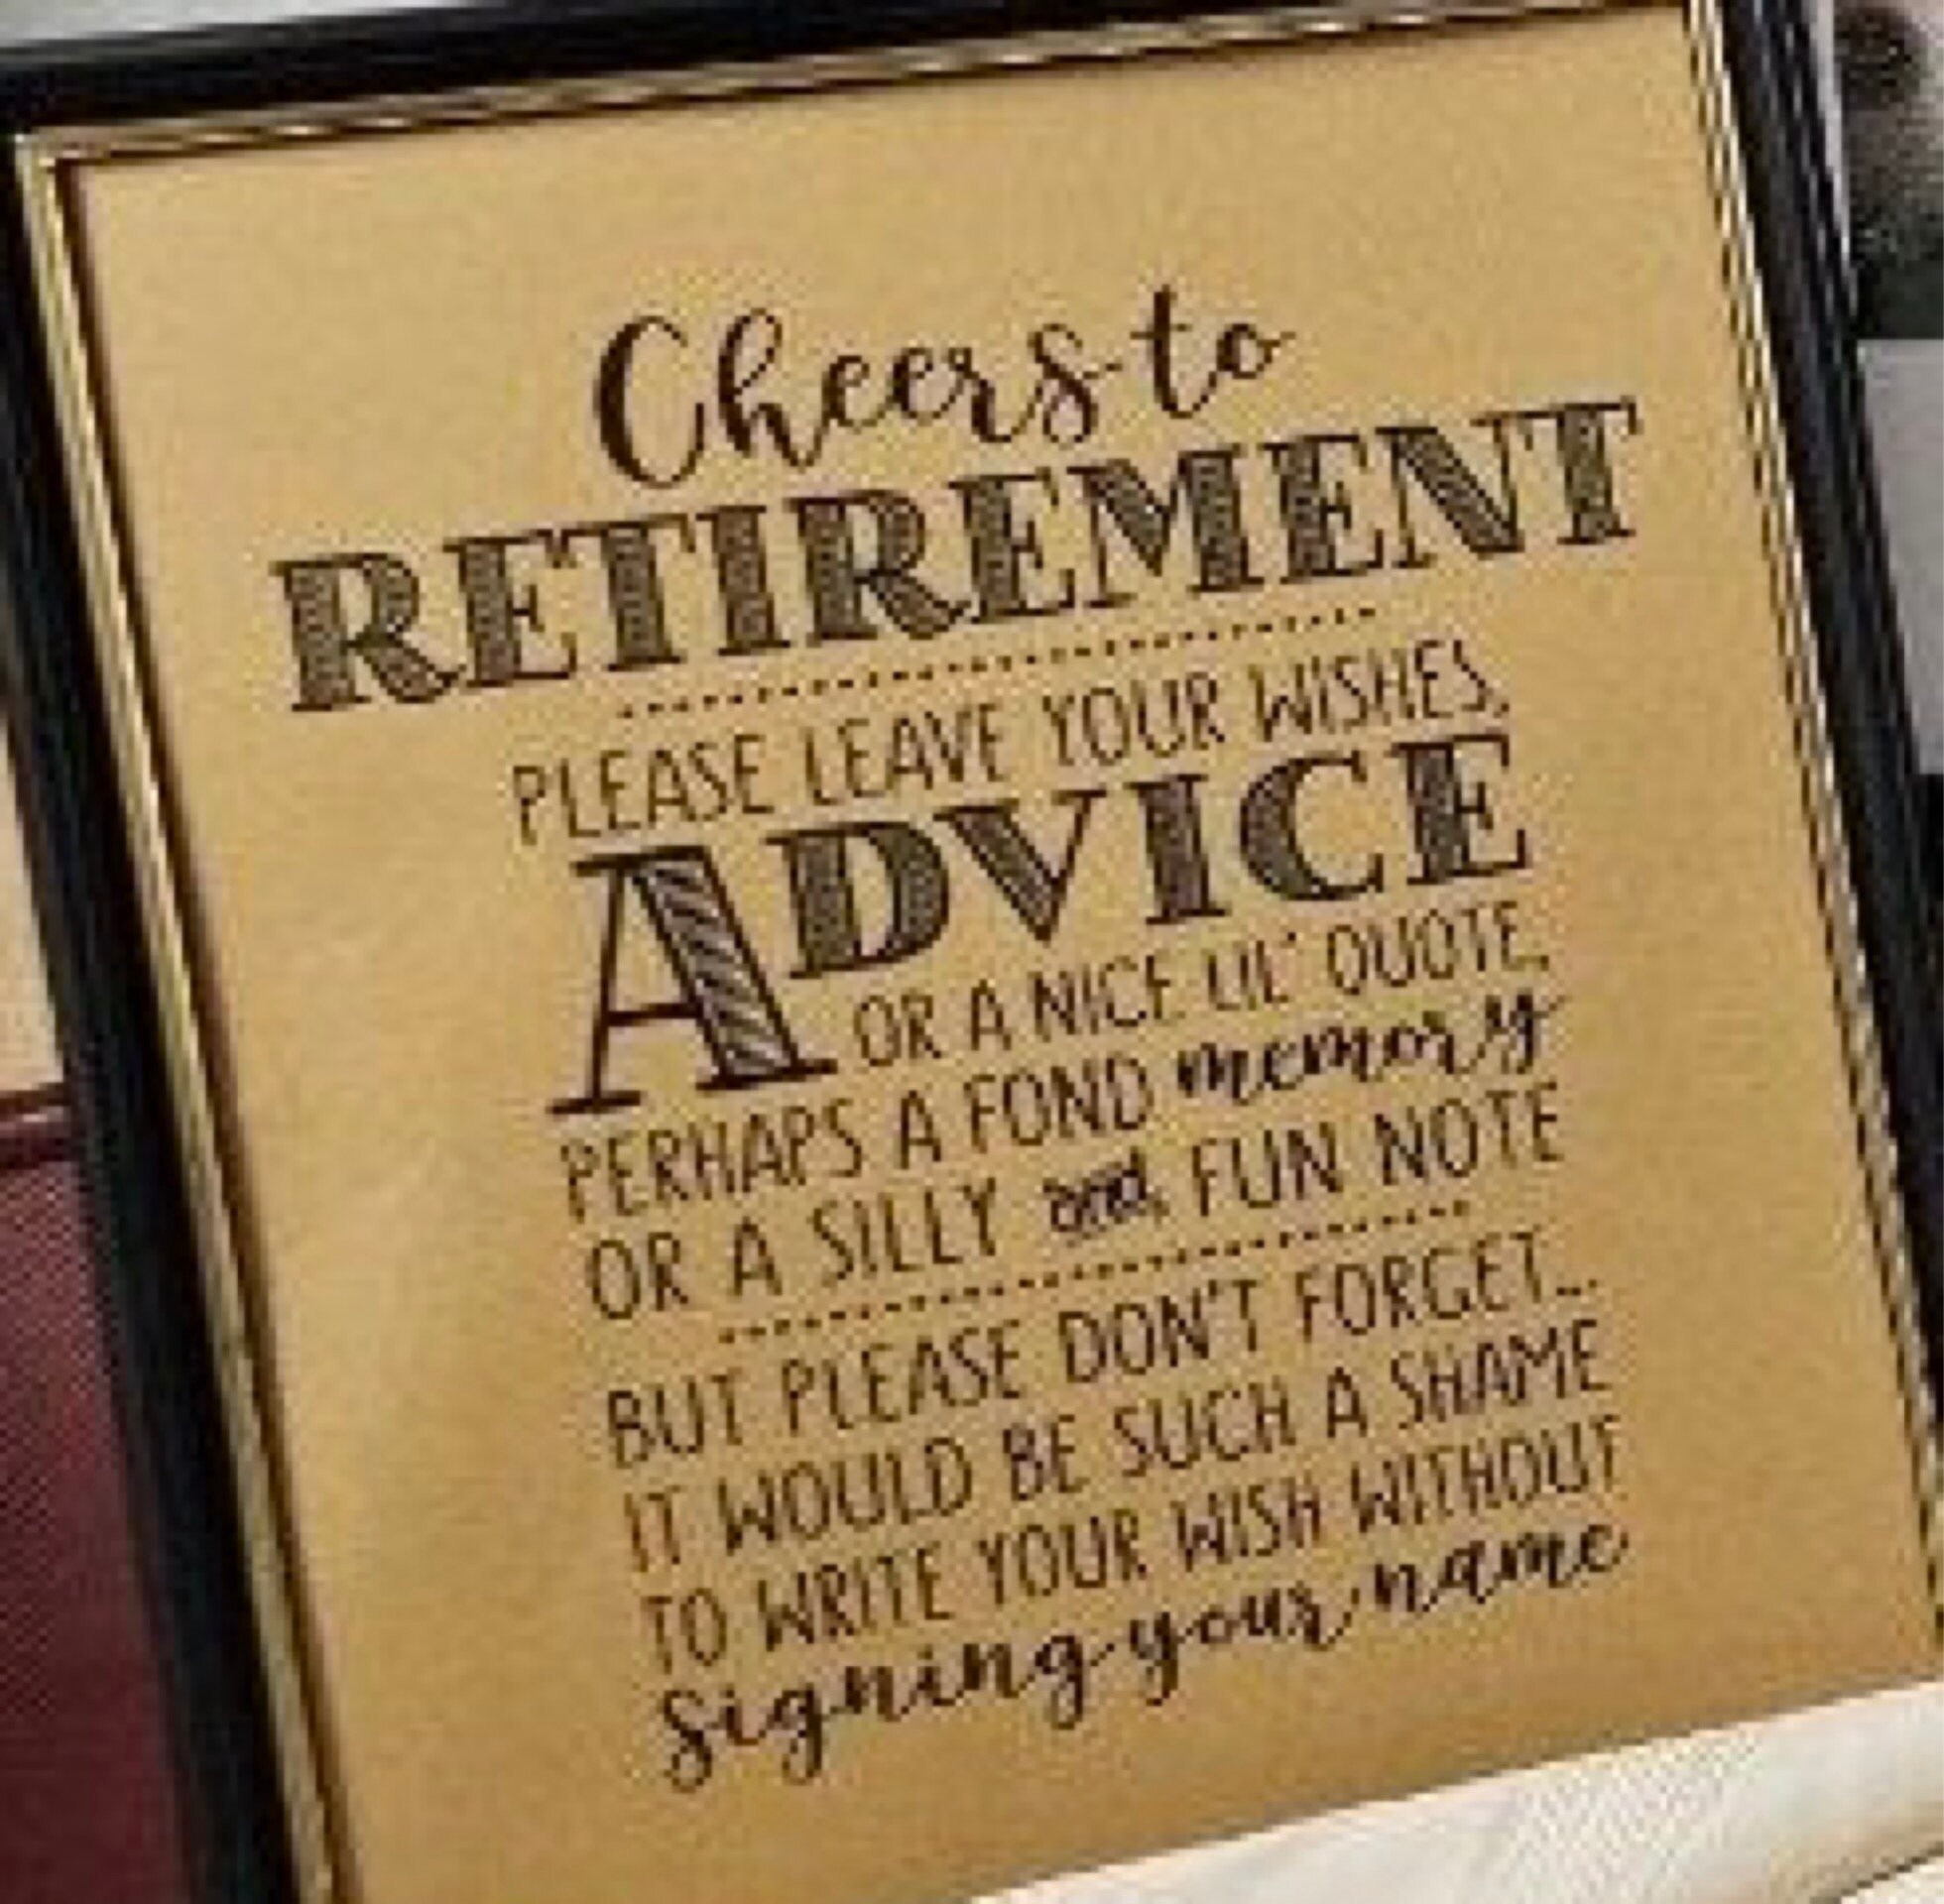 Cheers to
RETIREMENT
PLEASE LEAVE YOUR WISHES,
ADVICE
OR A NICE LIL' QUOTE,
PERHAPS A FOND memory
OR A SILLY and FUN NOTE
BUT PLEASE DON'T FORGET...
IT WOULD BE SUCH A SHAME
TO WRITE YOUR WISH WITHOUT
signing your name